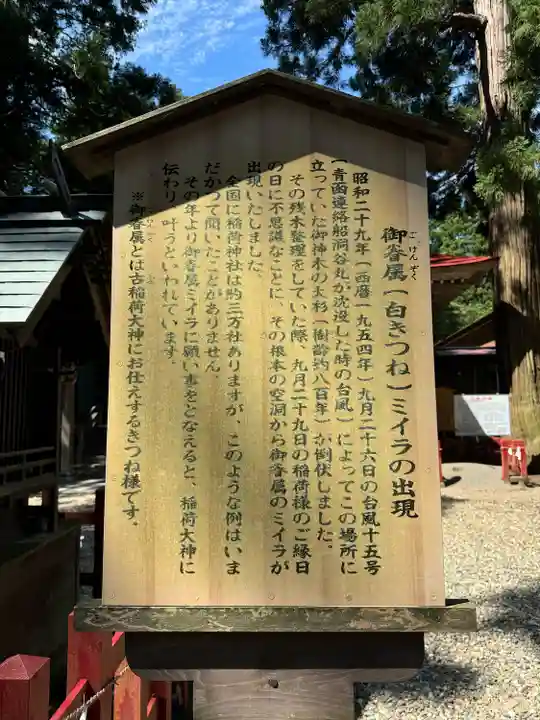 御眷属(白きつね)ミイラの出現
ごけんぞく
昭和二十九年(西暦一九五四年)九月二十六日の台風十五号
(青函連絡船洞谷丸が沈没した時の台風)によってこの場所に
立っていた御神木の大杉(樹齢約八百年)が倒伏しました。
その残木整理をしていた際、九月二十九日の稲荷様のご縁日
の日に不思議なことに、その根本の空洞から御眷属のミイラが
出現いたしました。
全国に稲荷神社は約三万社ありますが、このような例はいま
だかつて聞いたことがありません。
その年より御眷属ミイラに願い事をとなえると、稲荷大神に
伝わり、叶うといわれています。
※御眷属とは古稲荷大神にお仕えするきつね様です。